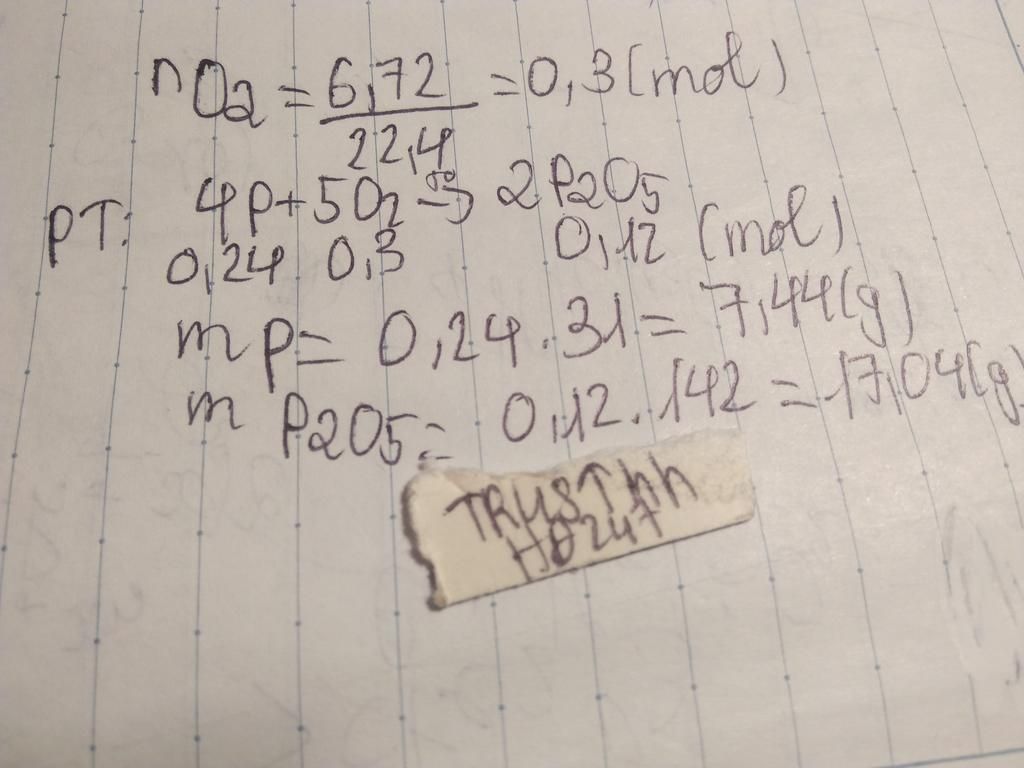 nO2 = 6,72 / 22,4 = 0,3 (mol)
PT: 4P + 5O2 -> 2P2O5
0,24 0,3 0,12 (mol)
mP = 0,24 . 31 = 7,44(g)
m P2O5 = 0,12 . 142 = 17,04(g)
TRUSTAA
HD247